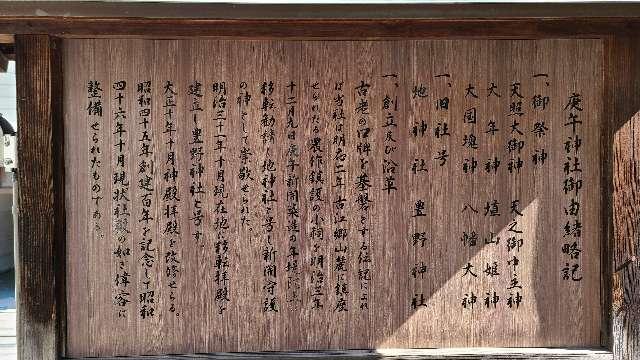 庚午神社御由緒略記
一、御祭神
天照大御神 天之御中主神
大年神 埴山姫神
大国魂神 八幡大神
一、旧社号
地神社 豊野神社
一、創立及び沿革
古老の口碑を基盤とする伝記によれ
ば当社は明応二年古江郷山麓に鎮座
せられたる農作鎮護の小祠を明治三年
十二月九日庚午新開築造の年堤防上に
移転勧請し地神社と号し新開守護
の神として崇敬せられた。
明治三十一年十月現在地に移転拝殿を
建立し豊野神社と号す。
大正十年十月神殿拝殿を改修せらる。
昭和四十五年創建百年を記念して昭和
四十六年十月現状社殿の如き偉容に
整備せられたものである。